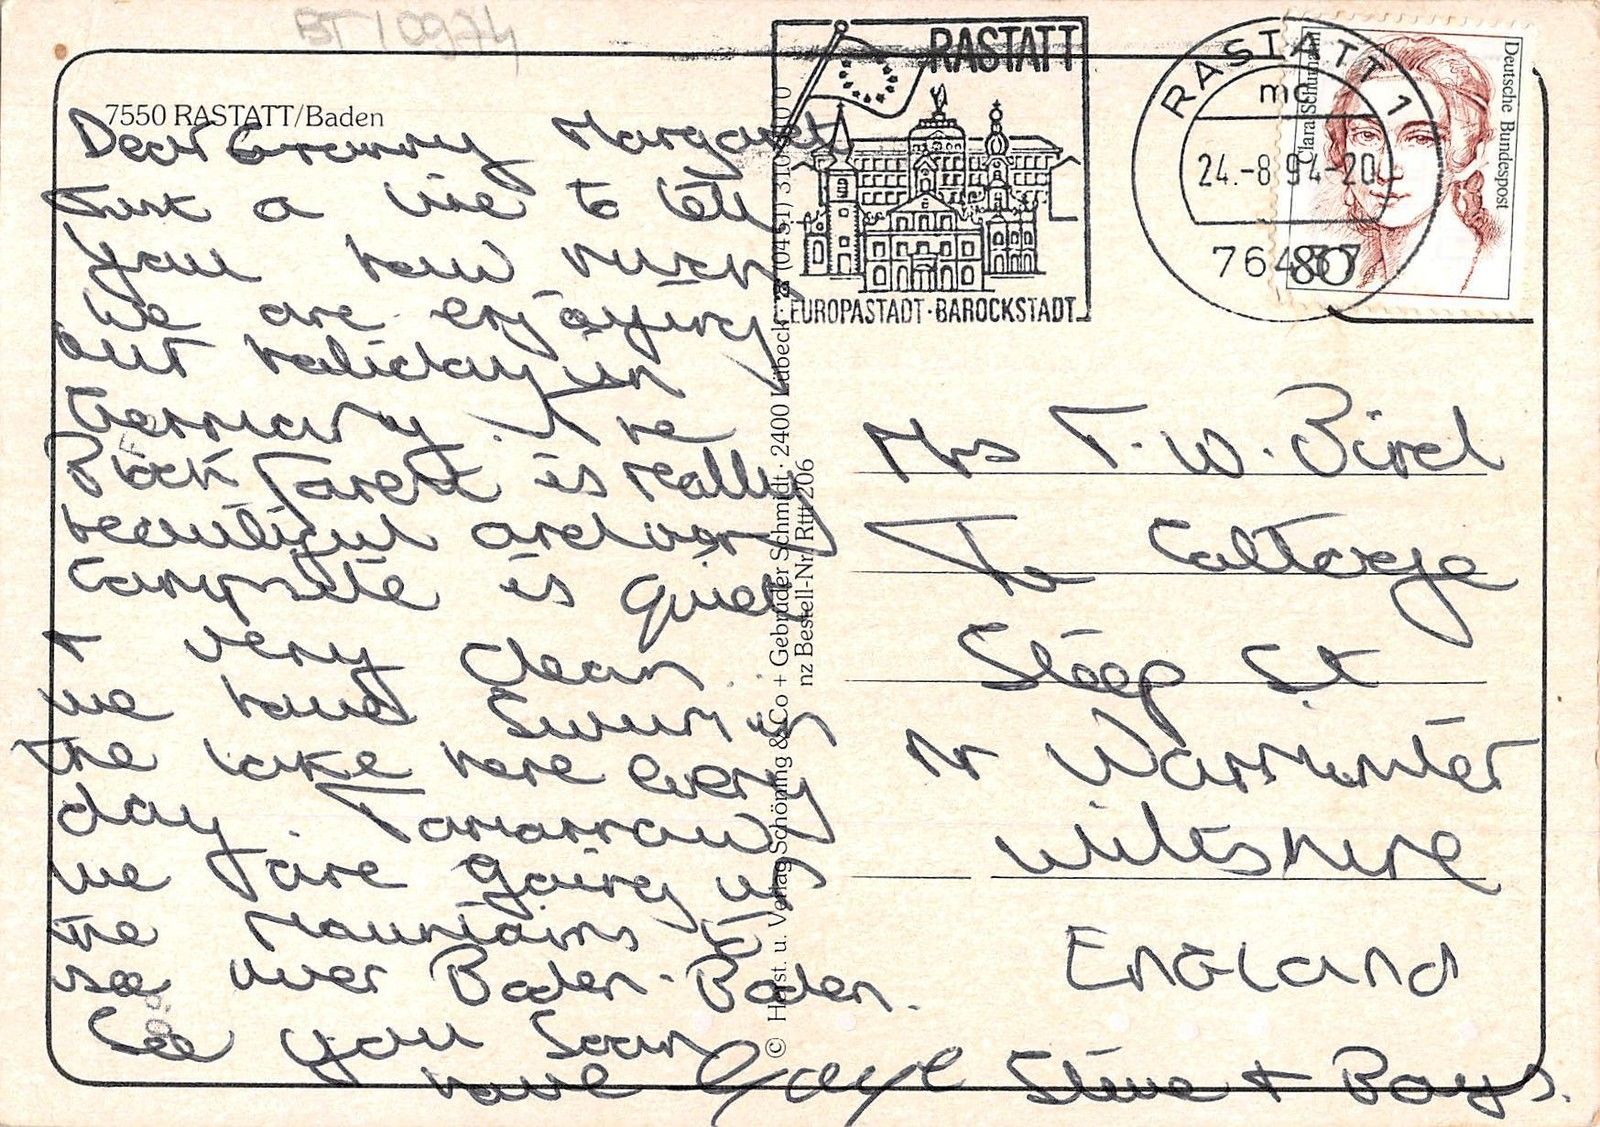 BT10974
7550 RASTATT/Baden
Dear Granny Margaret
Just a line to tell
you how much
we are enjoying
our holiday in
Germany. The
Black Forest is really
beautiful and our
Campsite is quiet
+ very clean.
we have swum in
the lake here every
day. Tomorrow
we are going up
the Mountains to
see over Baden-Baden.
See you soon
love Gaye Steve + Boys.
© Horst. u. Verlag Schöning & Co + Gebrüder Schmidt · 2400 Lübeck · ☎ (0451) 31
nz Bestell-Nr. Rttt 206
RASTATT
EUROPASTADT · BAROCKSTADT
RASTATT 1
mc
24.-8.94-20
76437
Deutsche Bundespost
Clara Schumann
80
Mrs T. W. Bird
The Cottage
Sleep St
Nr Warminster
Wiltshire
ENGLAND